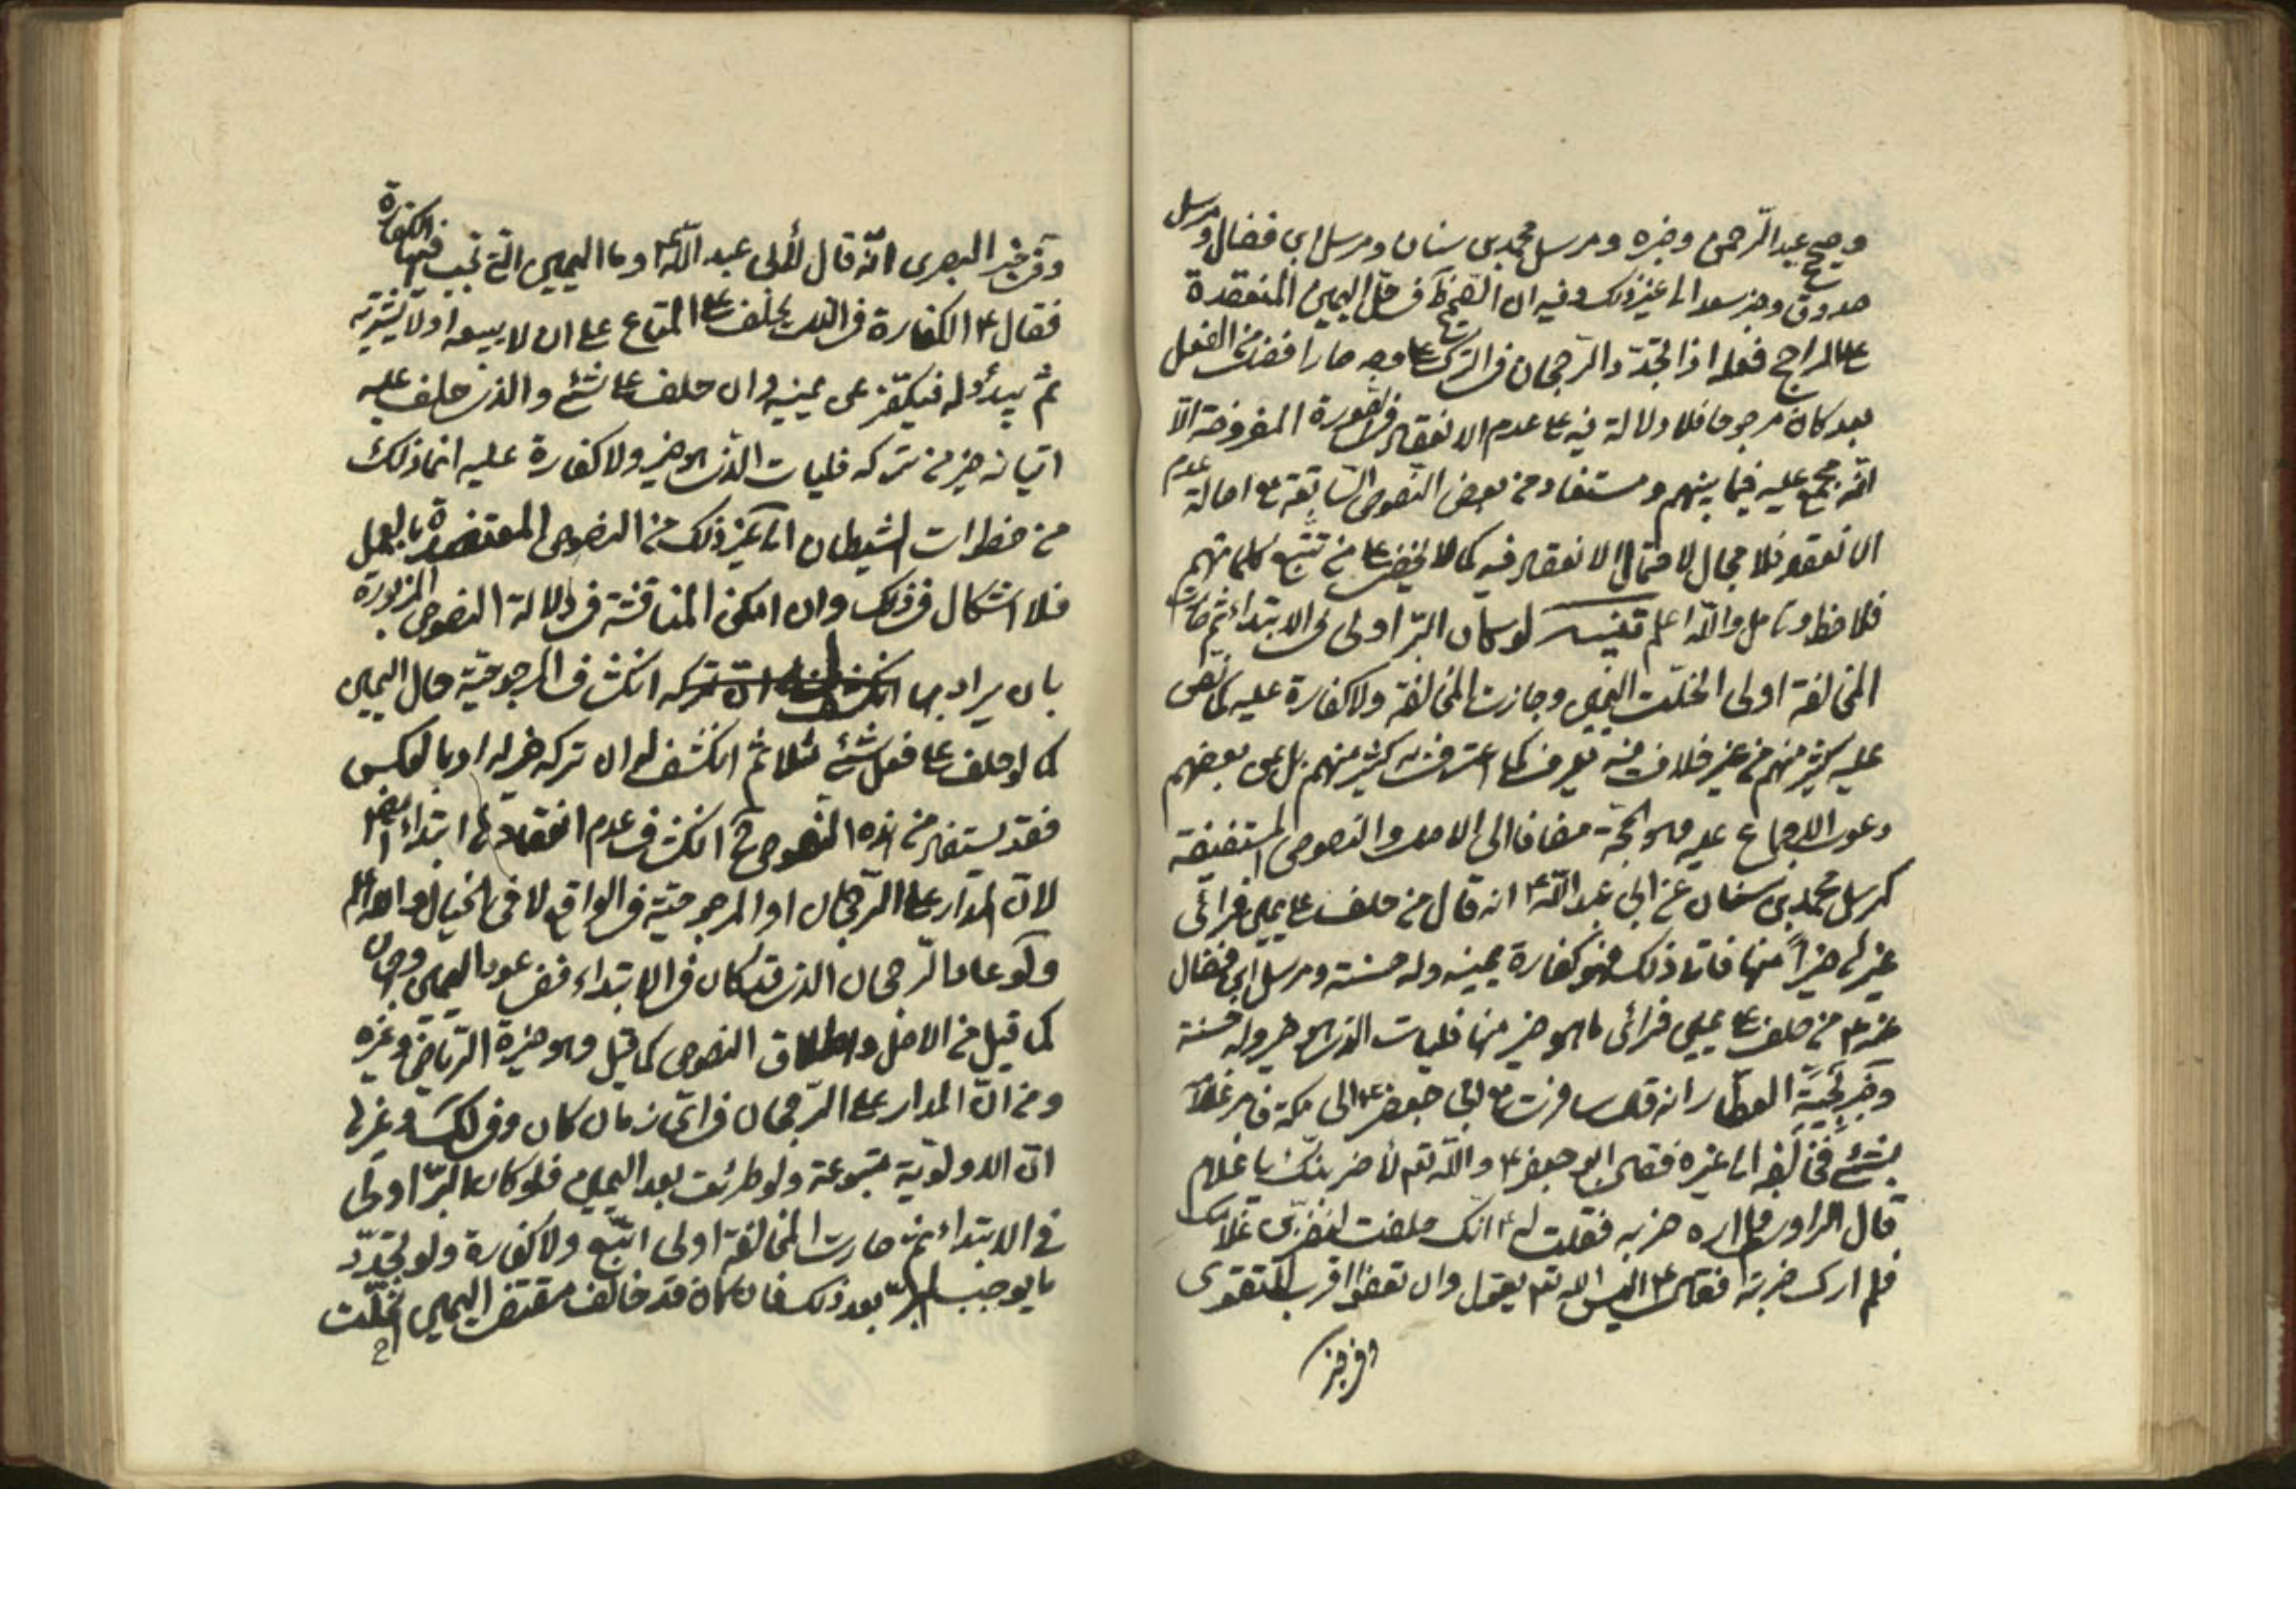 وصحيح عبد الرحمن وخبره ومرسل محمد بن سنان ومرسل ابن فضال ومرسل
صدوق وخبر سعد الى غير ذلك وفيه ان الظ في حل اليمين المنعقدة
على الراجح فعله اذا تجدد الرجحان في الترك وصار افضل من الفعل
بعد كان مرجوحا فلا دلالة فيه على عدم الانعقاد في الصورة المفروضة الا
انه مجمع عليه فيما بينهم ومستفاد من بعض النصوص السابقة مع اصالة عدم
الانعقاد فلا مجال لاحتمال الانعقاد فيه كما لا يخفى على من تتبع كلماتهم
فلاحظ وتامل والله اعلم تنبيه لو كان البر اولى في الابتداء ثم صارت
المخالفة اولى انحلت اليمين وجازت المخالفة ولا كفارة عليه كما نص
عليه كثير منهم من غير خلاف فيه يعرف كما اعترف به كثير منهم بل عن بعضهم
دعوى الاجماع عليه وهو الحجة مضافا الى الاصل والنصوص المستفيضة
كمرسل محمد بن سنان عن ابي عبد الله ع انه قال من حلف على يمين فرأى
غيرها خيرا منها فاتى ذلك فهو كفارة يمينه وله حسنة ومرسل ابن فضال
عنه ع من حلف على يمين فرأى ما هو خير منها فليات الذي هو خير وله حسنة
وخبر نجية العطار انه قال سافرت مع ابي جعفر ع الى مكة فامر غلامه
بشئ فخالفه الى غيره فقال ابو جعفر ع والله تع لأضربنك يا غلام
قال الراوي فلم اره ضربه فقلت له ع انك حلفت لتضربن غلامك
فلم ارك ضربته فقال ع اليس الله تع يقول وان تعفوا اقرب للتقوى
وفي خبر
وفي خبر البصرى انه قال لأبي عبد الله ع وما اليمين التي تجب فيها الكفارة
فقال ع الكفارة في الذي يحلف على المتاع على ان لا يبيعه او لا يشتريه
ثم يبدو له فيكفر عن يمينه وان حلف على شئ والذي حلف عليه
اتيانه خير من تركه فليات الذي هو خير ولا كفارة عليه انما ذلك
من خطرات الشيطان الى غير ذلك من النصوص المعتضدة بالعمل
فلا اشكال في ذلك وان امكن المناقشة في دلالة النصوص المزبورة
بان يراد بها انكشاف المرجوحية حال اليمين
كما لو حلف على فعل شئ مثلا ثم انكشف له ان تركه خير له او بالعكس
فقد يستفاد من هذه النصوص ح انكشاف عدم انعقادها ابتداء ايضا
لان المدار على الرجحان او المرجوحية في الواقع لا في الخيال والله العالم
ولو عاد الرجحان الذي قد كان في الابتداء ففي عود اليمين وجهان
كما قيل من الاصل واطلاق النصوص كما قيل وهو خيرة الرياض وغيره
ومن ان المدار على الرجحان في اي زمان كان وفي لك وغيرها
ان الاولوية متبوعة ولو طرئت بعد اليمين فلو كان البر اولى
في الابتداء ثم صارت المخالفة اولى اتبع ولا كفارة ولو تجدد
ما يوجب البر بعد ذلك فان كان قد خالف مقتضى اليمين انحلت